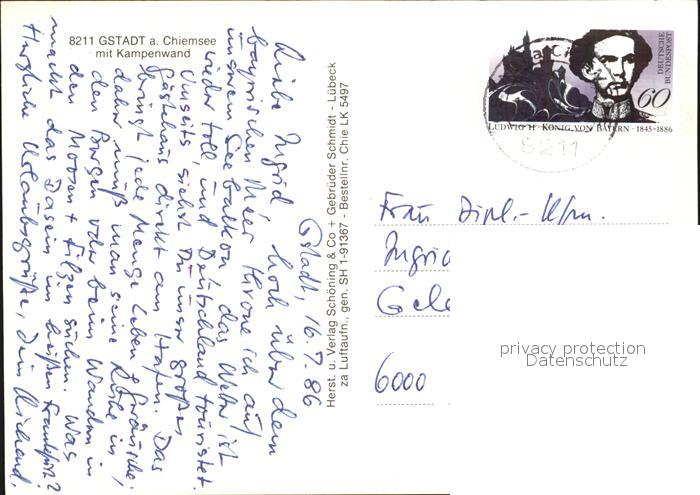 8211 GSTADT a. Chiemsee
mit Kampenwand
Gstadt, 16.7.86
Liebe Ingrid, hoch über dem
bayrischen Meer throne ich auf
unserem Seebalkon das Wetter ist
wieder toll, und Deutschland touristet.
Umseits siehst Du unser großes
Gästehaus direkt am Hafen. Das
bringt jede Menge Leben + Geräusche;
daher muß man seine Ruhe in
den Bergen oder beim Wandern in
den Mooren + Filzen suchen. Was
macht das Dasein im heißen Frankfurt?
Herzliche Urlaubsgrüße, Dein
Herst. u. Verlag Schöning & Co + Gebrüder Schmidt - Lübeck
za Luftaufn., gen. SH 1-91367 - Bestellnr. Chie LK 5497
DEUTSCHE
BUNDESPOST
60
LUDWIG II · KÖNIG VON BAYERN · 1845-1886
8211
Frau Dipl.-Kfm.
Ingrid
6000
privacy protection
Datenschutz